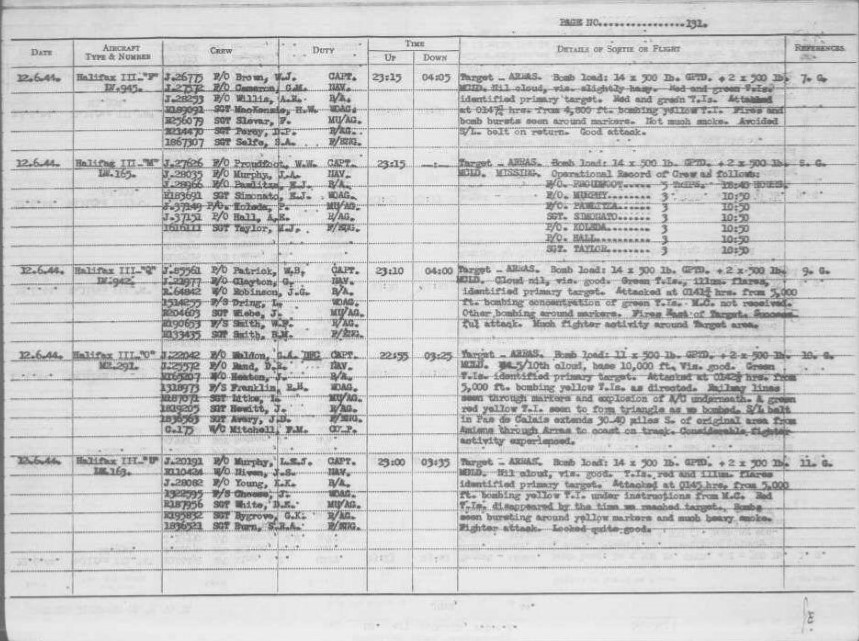 PAGE NO.................131.
DATE AIRCRAFT TYPE & NUMBER CREW DUTY TIME UP DOWN DETAILS OF SORTIE OR FLIGHT REFERENCES
12.6.44. Halifax III "F" J.26775 P/O Brown, W.J. CAPT. 23:15 04:05 Target - ARRAS. Bomb load: 14 x 500 lb. GPTD. + 2 x 500 lb. 7. G.
LV.945. J.27572 F/O Cameron, G.M. NAV. MOLD. Nil cloud, vis. slightly hazy. Red and green T.Is.
J.28253 F/O Willis, A.R. B/A. identified primary target. Red and green T.Is. Attacked
SGT MacKenzie, H.W. WOAG. at hrs. from 4,800 ft. bombing yellow T.I. Fires and
R256079 SGT Slevar, MU/AG. bomb bursts seen around markers. Not much smoke. Avoided
R214470 SGT Percy, D.P. R/AG. S/L. belt on return. Good attack.
1867307 SGT Selfe, S.A. F/ENG.
12.6.44. Halifax III "M" J.27626 P/O Proudfoot, W.W. CAPT. 23:15 --:-- Target - ARRAS. Bomb load: 14 x 500 lb. GPTD. + 2 x 500 lb. 8. G.
LW.165. J.28035 F/O Murphy, J.A. NAV. MOLD. MISSING. Operational Record of Crew as follows:
J.28966 F/O E.J. B/A. P/O. PROUDFOOT 5 TRIPS. HOURS.
R183691 SGT Simonato, E.J. WOAG. F/O. MURPHY...... 3 10:50
J.37149 P/O. Koleda, P. MU/AG. F/O. 3 10:50
J.37151 P/O Hall, A.E. R/AG. SGT. 3 10:50
SGT Taylor, M.J. F/ENG. P/O. KOLEDA...... 3 10:50
P/O. HALL........ 3 10:50
SGT. TAYLOR...... 3 10:50
12.6.44. Halifax III "Q" J.85561 P/O Patrick, W.S. CAPT. 23:10 04:00 Target - ARRAS. Bomb load: 14 x 500 lb. GPTD. + 2 x 500 lb. 9. G.
F/O Clayton, G. NAV. MOLD. Cloud nil, vis. good. Green T.Is., illum. flares,
WO Robinson, J.G. B/A. identified primary target. Attacked at hrs. from 5,000
F/S Dring, J. WOAG. ft. bombing concentration of green T.Is. M.C. not received.
R204603 SGT Wiebe, J. MU/AG. Other bombing around markers. Fires East of Target.
F/S Smith, W.P. R/AG. attack. Much fighter activity around Target area.
R133435 SGT Smith, F/ENG.
12.6.44. Halifax III "O" J.22042 F/O CAPT. 22:55 03:25 Target - ARRAS. Bomb load: 11 x 500 lb. GPTD. + 2 x 500 lb. 10. G.
MZ.291. J.25572 F/O D. NAV. MOLD. 4-5/10th cloud, base 10,000 ft. Vis. good. Green
J. B/A. T.Is. identified primary target. Attacked at hrs. from
1318973 F/S Franklin, R.H. WOAG. 5,000 ft. bombing yellow T.Is. as directed. Railway lines
SGT MU/AG. seen through markers and explosion of A/C underneath. A green
1819205 SGT Hewitt, J. R/AG. red yellow T.I. seen to form triangle as we bombed. S/L belt
SGT Avary, J.D. F/ENG. in Pas de Calais extends 30-40 miles S. of original area from
C.175 W/C Mitchell, F.M. Amiens through Arras to coast on track. Considerable fighter
activity experienced.
12.6.44. Halifax III "U" J.20191 F/O Murphy, L.E.J. CAPT. 23:00 03:35 Target - ARRAS. Bomb load: 14 x 500 lb. GPTD. + 2 x 500 lb. 11. G.
LW.163. WO Niven, J.S. NAV. MOLD. Nil cloud, vis. good. T.Is. red and illum. flares
J.28082 F/O Young, K.K. B/A. identified primary target. Attacked at 0145 hrs. from 5,000
1322595 F/S Cheese, J. WOAG. ft. bombing yellow T.I. under instructions from M.C. Red
R187956 SGT White, D.K. MU/AG. T.Is. disappeared by the time we reached target. Bombs
SGT Bygrove, G.K. R/AG. seen bursting around yellow markers and much heavy smoke.
1836521 SGT Burn, F/ENG. Fighter attack. Looked quite good.